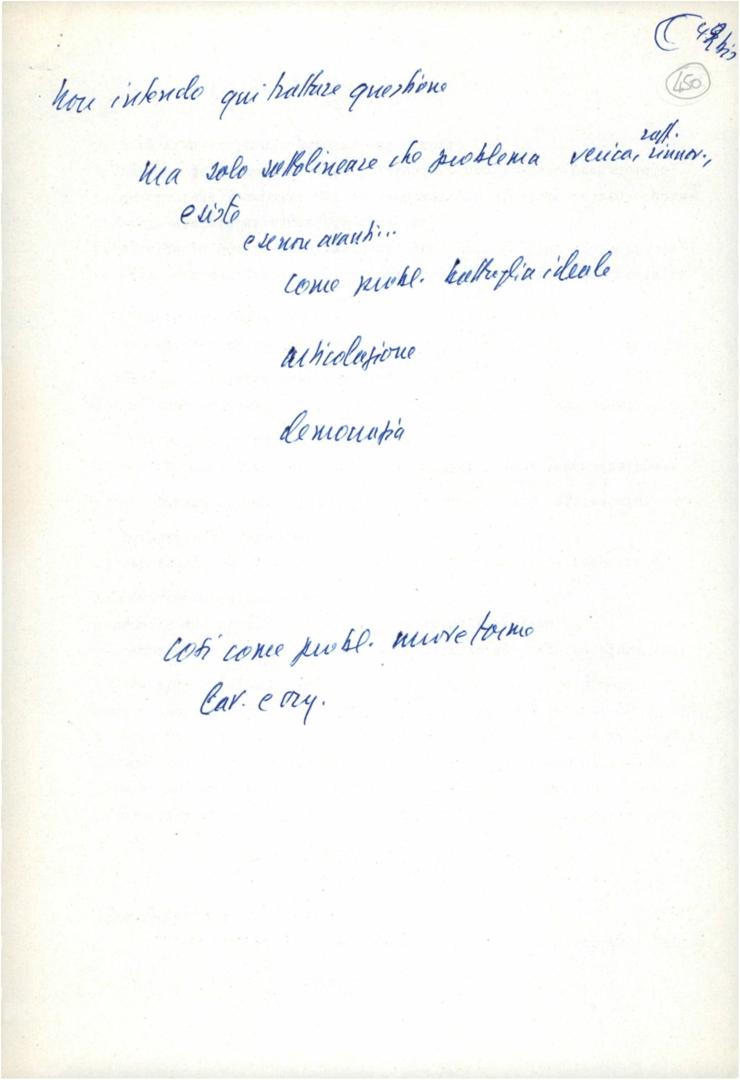 42 bis
450
Non intendo qui trattare questione
raff.
ma solo sottolineare che problema verica, rinnov.,
esiste
e se non avanti...
come probl. battaglia ideale
articolazione
democrazia
così come probl. nuove forme
lav. e org.